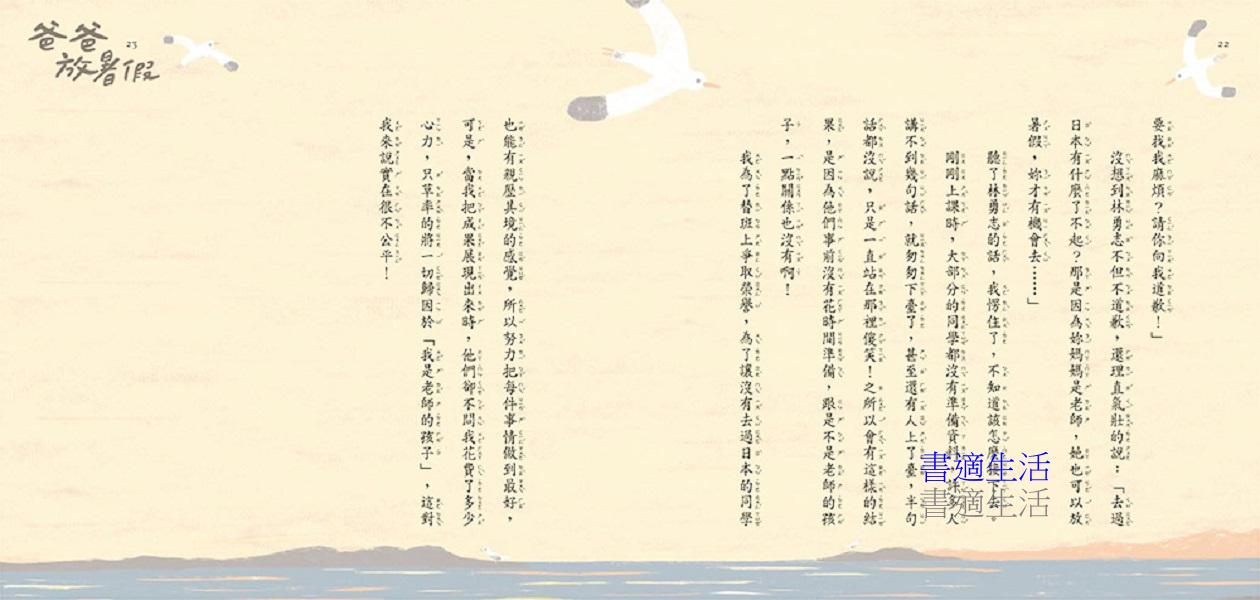 22
要找我麻煩？請你向我道歉！」
沒想到林勇志不但不道歉，還理直氣壯的說：「去過
日本有什麼了不起？那是因為妳媽媽是老師，她也可以放
暑假，妳才有機會去……」
聽了林勇志的話，我愣住了，不知道該怎麼接下去。
剛剛上課時，大部分的同學都沒有準備資料，許多人
講不到幾句話，就匆匆下臺了，甚至還有人上了臺，半句
話都沒說，只是一直站在那裡傻笑！之所以會有這樣的結
果，是因為他們事前沒有花時間準備，跟是不是老師的孩
子，一點關係也沒有啊！
我為了替班上爭取榮譽，為了讓沒有去過日本的同學
也能有親歷其境的感覺，所以努力把每件事情做到最好，
可是，當我把成果展現出來時，他們卻不問我花費了多少
心力，只草率的將一切歸因於「我是老師的孩子」，這對
我來說實在很不公平！
爸爸
放暑假
23
書適生活
書適生活